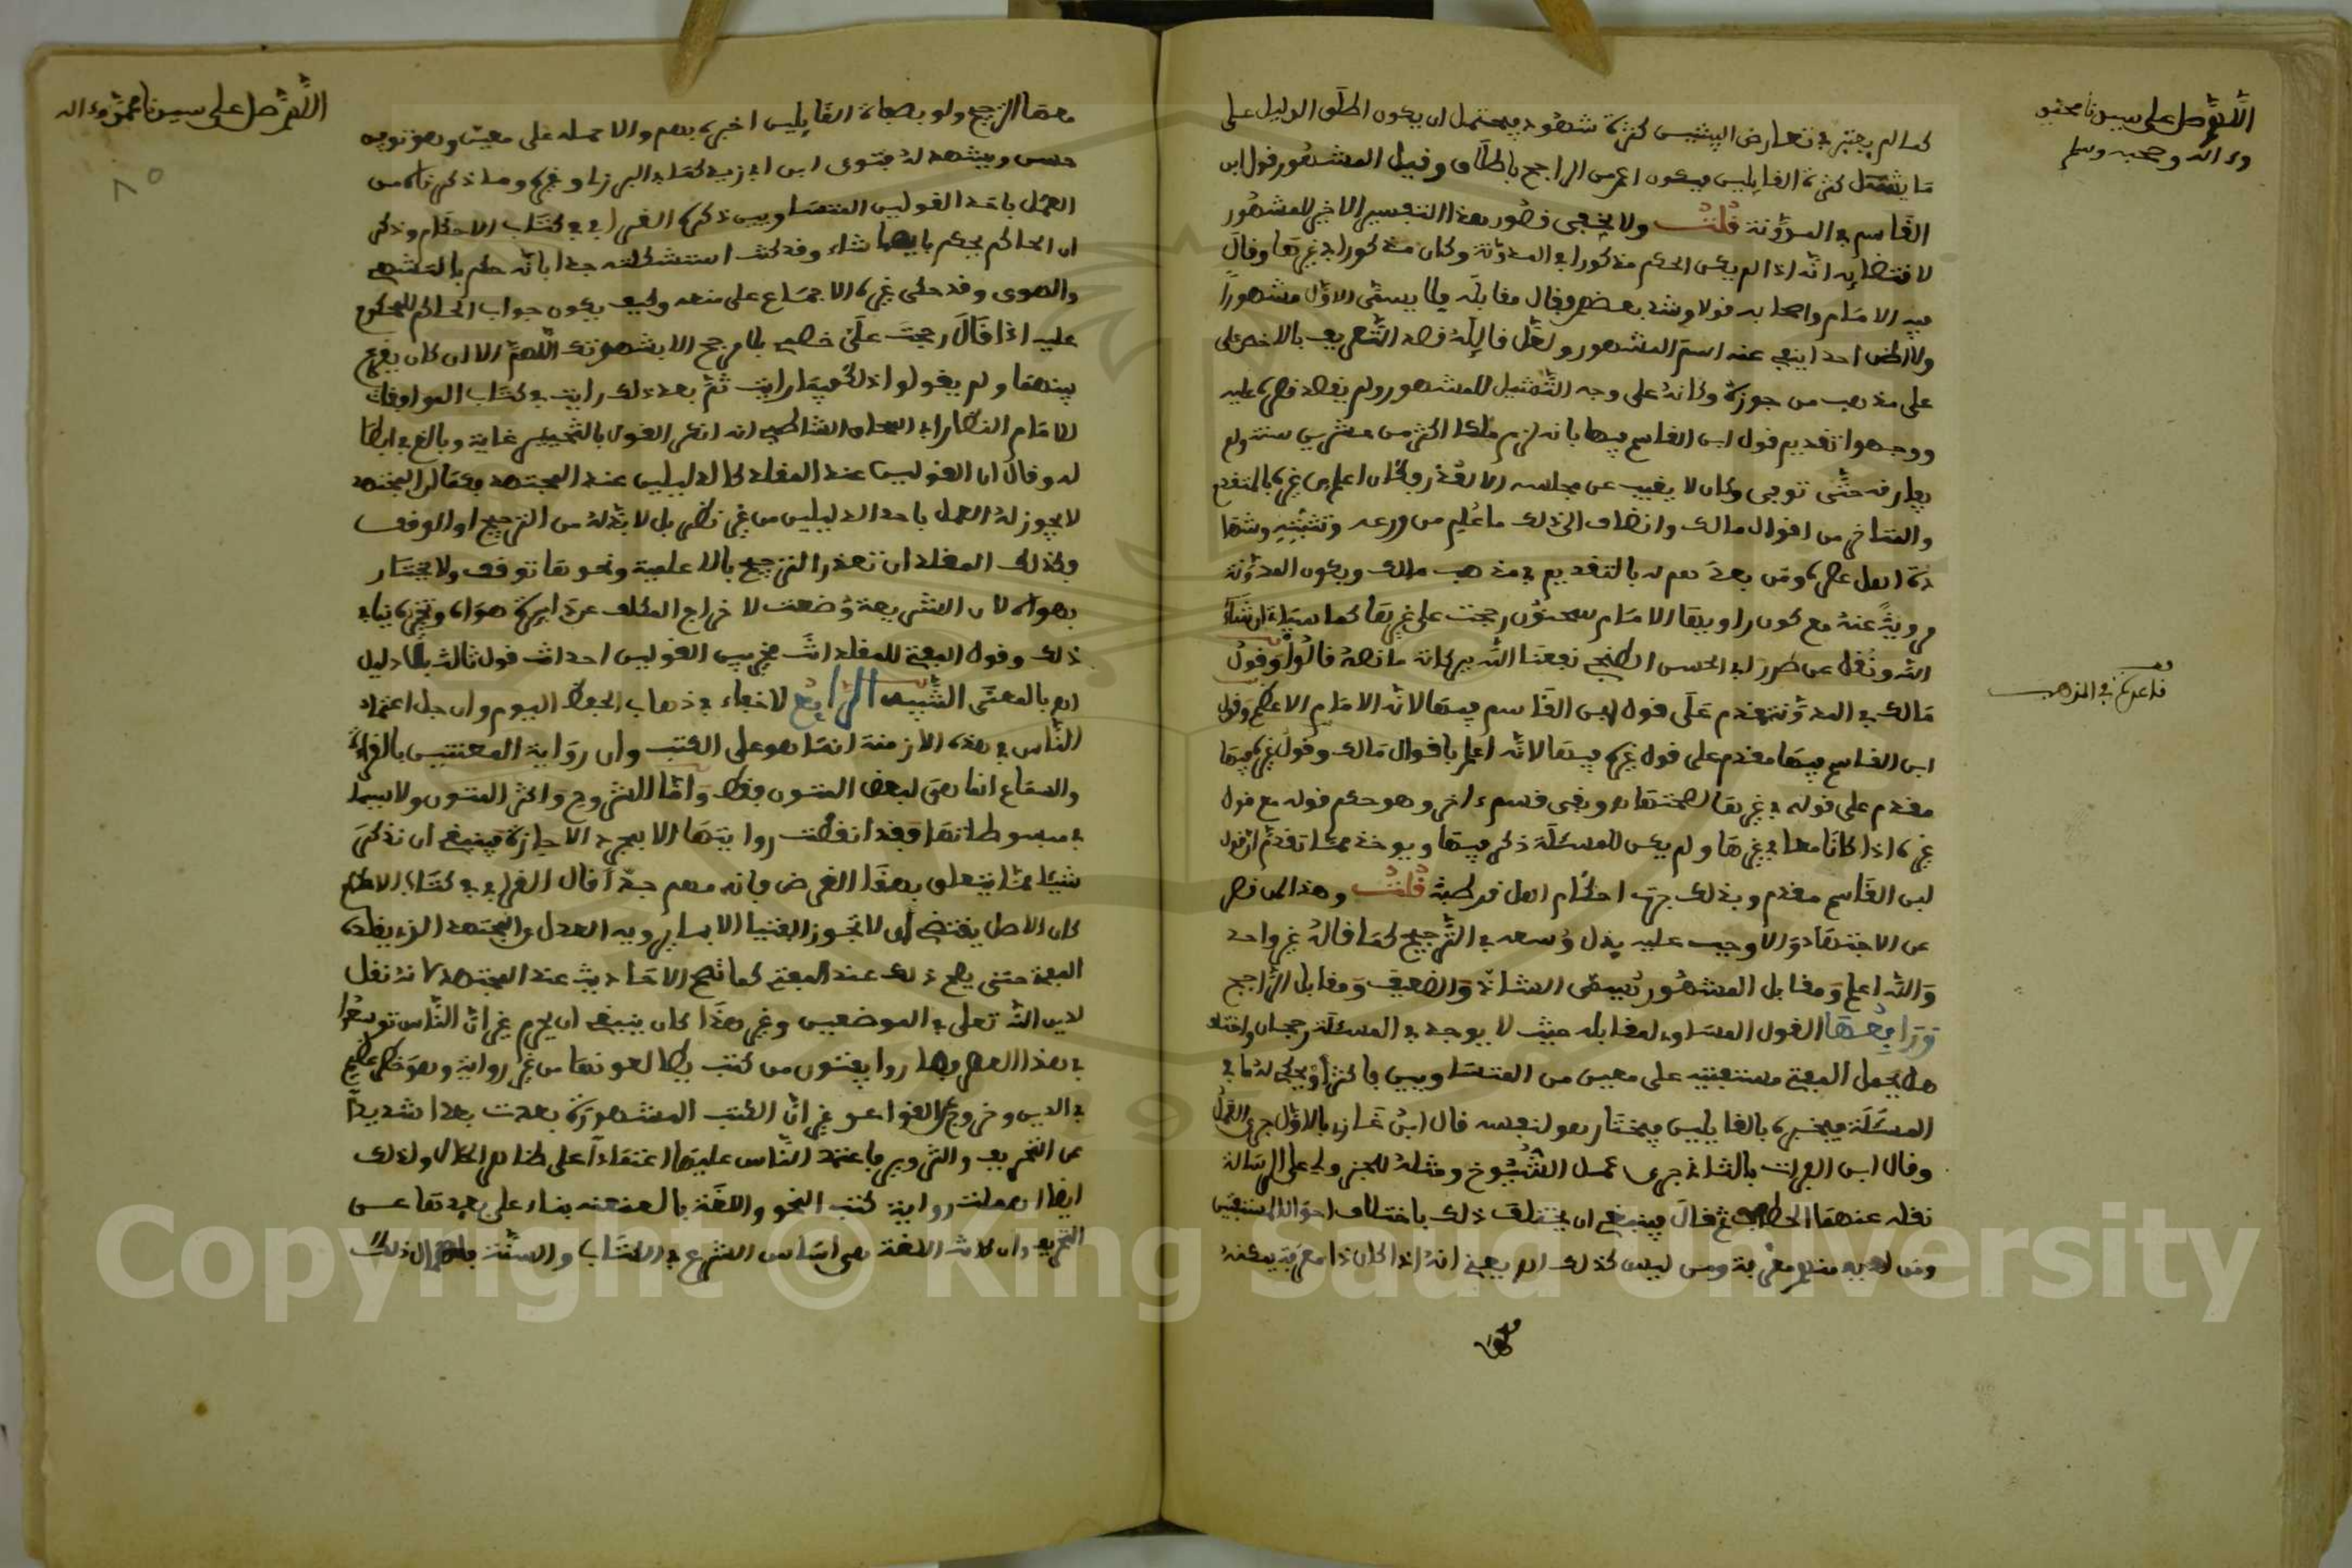 اللهم صل على سيدنا محمد
وءاله وصحبه وسلم
كما لم يعتبر في تعارض البينتين كثرة شهود فيحتمل ان يكون اطلق الدليل على
ما يشمل كثرة القايلين فيكون اعم من الراجح باطلاق وقيل المشهور قول ابن
القاسم في المدونة قلت ولا يخفى قصور هذا التفسير الاخير للمشهور
لاقتضايه انه اذا لم يكن الحكم مذكورا في المدونة وكان مذكورا في غيرها وقال
فيه الامام واصحابه قولا وشذ بعضهم فقال مقابله فلا يسمى الاول مشهورا
ولا اظن احدا ينفي عنه اسم المشهور ولعل قايله قصد التعريف بالاخص على
على مذهب من جوزه وكانه على وجه التمثيل للمشهور ولم يقصد قصره عليه
ووجهوا تقديم قول ابن القاسم فيها بانه لزم مالكا اكثر من عشرين سنة ولم
يفارقه حتى توفي وكان لا يغيب عن مجلسه الا لعذر وكان اعلم من غيره بالمتقدم
والمتاخر من اقوال مالك وانضاف الى ذلك ما علم من ورعه وتثبته وشها
دة اهل عصره ومن بعدهم له بالتقديم في مذهب مالك ويكون المدونة
مروية عنه مع كون راويها الامام سحنون رجحت على غيرها كما سياتي ان شاء
الله ونقل عن طرر ابي الحسن الطنجي نفعنا الله ببركاته ما نصه قالوا وقول
قاعدة في المذهب
مالك في المدونة مقدم على قول ابن القاسم فيها لانه الامام الاعظم وقول
ابن القاسم فيها مقدم على قول غيره فيها لانه اعلم باقوال مالك وقول غيره فيها
مقدم على قوله في غيرها لصحتها وبقي قسم ءاخر وهو حكم قوله مع قول
غيره اذا كانا معا في غيرها ولم يكن للمسئلة ذكر فيها ويوخذ مما تقدم ان قول
ابن القاسم مقدم وبذلك جرت احكام اهل قرطبة قلت وهذا لمن قصر
عن الاجتهاد والا وجب عليه بذل وسعه في الترجيح كما قاله غير واحد
والله اعلم ومقابل المشهور يسمى الشاذ والضعيف ومقابل الراجح
ورابعها القول المساوي لمقابله حيث لا يوجد في المسئلة رجحان واختلف
هل يحمل المفتي مستفتيه على معين من المتساويين فاكثر او يحكي له ما في
المسئلة فيخبره بالقايلين فيختار هو لنفسه قال ابن غازي بالاول جرى العمل
وقال ابن الفرات بالثاني جرى عمل الشيوخ ومثله للجزولي على الرسالة
نقله عنهما الحطاب ثم قال فينبغي ان يختلف ذلك باختلاف احوال المستفتين
ومن لديه منهم معرفة ومن ليس كذلك اه يعني انه اذا كان ذا معرفة يمكنه
اللهم صل على سيدنا محمد وءاله
٨٥
معها الترجيح ولو بصفات القايلين اخبره بهم والا حمله على معين وهو توجيه
حسن ويشهد له فتوى ابن ابي زيد كما في البرزلي وغيره وما ذكرناه من
العمل باحد القولين المتساويين ذكره القرافي في كتاب الاحكام وذكر
ان الحاكم يحكم بايهما شاء وقد كنت استشكلته جدا بانه حكم بالتشهي
والهوى وقد حكى غيره الاجماع على منعه وكيف يكون جواب الحاكم للمحكوم
عليه اذا قال رجحت علي خصمي بلا مرجح الا بشهوتك اللهم الا ان كان يقرع
بينهما ولم يقولوا ذلك فيما رايت ثم بعد ذلك رايت في كتاب الموافقات
للامام النظار ابي اسحاق الشاطبي انه انكر القول بالتخيير غاية وبالغ في ابطا
له وقال ان القولين عند المقلد كالدليلين عند المجتهد فكما ان المجتهد
لا يجوز له العمل باحد الدليلين من غير نظر بل لا بد له من الترجيح او الوقف
وكذلك المقلد ان تعذر الترجيح بالاعلمية ونحوها توقف ولا يختار
بهواه لان الشريعة وضعت لاخراج المكلف عن دايرة هواه وتخييره ينافي
ذلك وقول المفتي للمقلد انت مخير بين القولين احداث قول ثالث بلا دليل
اه بالمعنى التنبيه الرابع لا خفاء في ذهاب الحفظ اليوم وان جل اعتماد
الناس في هذه الازمنة انما هو على الكتب وان رواية المعتنين بالقراءة
والسماع انما هي لبعض المتون فقط واما الشروح واكثر المتون ولا سيما
مبسوطاتها فقد انقطعت روايتها الا بمجرد الاجازة فينبغي ان نذكر
شيئا مما يتعلق بهذا الغرض فانه مهم جدا قال القرافي في كتاب الاحكام
كان الاصل يقتضي ان لا تجوز الفتيا الا بما يرويه العدل عن المجتهد الذي يقلده
المفتي حتى يصح ذلك عند المفتي كما تصح الاحاديث عند المجتهد لانه نقل
لدين الله تعلى في الموضعين وغير هذا كان ينبغي ان يحرم غير ان الناس توسعوا
في هذا العصر فصاروا يفتون من كتب يطالعونها من غير رواية وهو خطر عظيم
في الدين وخروج عن القواعد غير ان الكتب المشهورة بعدت بعدا شديدا
عن التحريف والتزوير فاعتمد الناس عليها اعتمادا على ظاهر الحال ولذلك
ايضا اهملت رواية كتب النحو واللغة بالعنعنة بناء على بعدها عن
التحريف وان كانت اللغة هي اساس الشرع في الكتاب والسنة فاهمال ذلك
Copyright © King Saud University